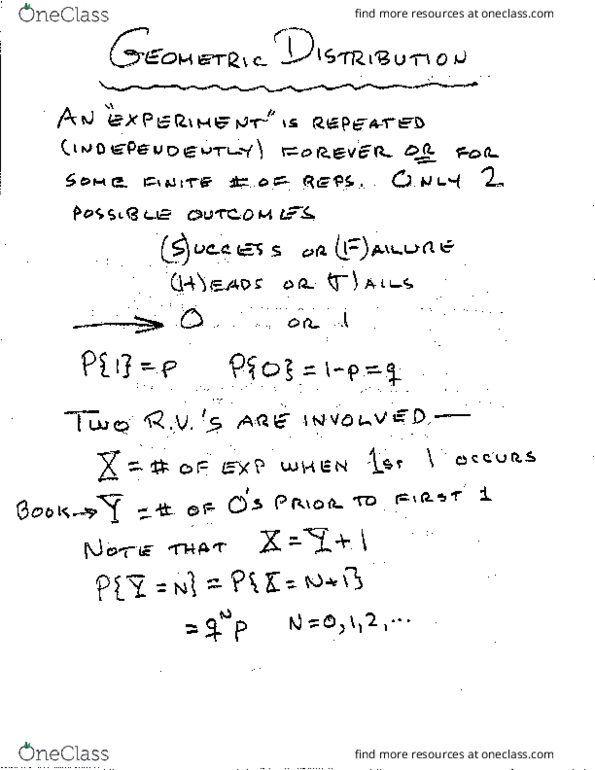 OneClass
find more resources at oneclass.com
GEOMETRIC DISTRIBUTION
AN "EXPERIMENT" IS REPEATED
(INDEPENDENTLY) FOREVER OR FOR
SOME FINITE # OF REPS. ONLY 2
POSSIBLE OUTCOMES
(S)UCCESS OR (F)AILURE
(H)EADS OR (T)AILS
→ 0 OR 1
P{1} = p P{0} = 1-p = q
TWO R.V.'S ARE INVOLVED —
X = # OF EXP WHEN 1ST 1 OCCURS
BOOK → Y = # OF 0'S PRIOR TO FIRST 1
NOTE THAT X = Y + 1
P{Y = N} = P{X = N+1}
= q^N p N = 0, 1, 2, ...
OneClass
find more resources at oneclass.com